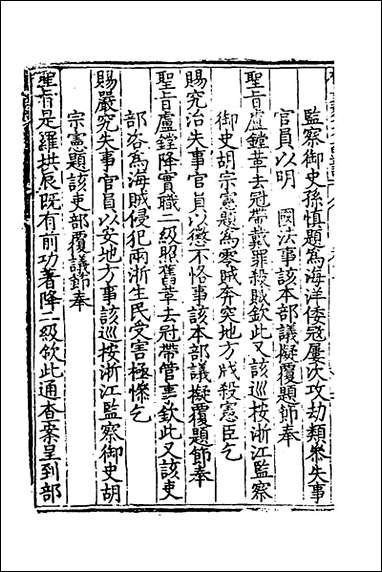 監察御史孫慎題為海洋倭寇屢次攻刼類參失事
官員以明　國法事該本部議擬覆題節奉
聖旨盧鏜革去冠帶戴罪殺賊欽此又該巡按浙江監察
御史胡宗憲題為零賊奔突地方戕殺憲臣乞
賜究治失事官員以懲不恪事該本部議擬覆題節奉
聖旨盧鏜降實職二級照舊革去冠帶管事欽此又該吏
部咨為海賊侵犯兩浙生民受害極慘乞
賜嚴究失事官員以安地方事該巡按浙江監察御史胡
宗憲題該吏部覆議節奉
聖旨是羅拱辰既有前功著降二級欽此通查案呈到部